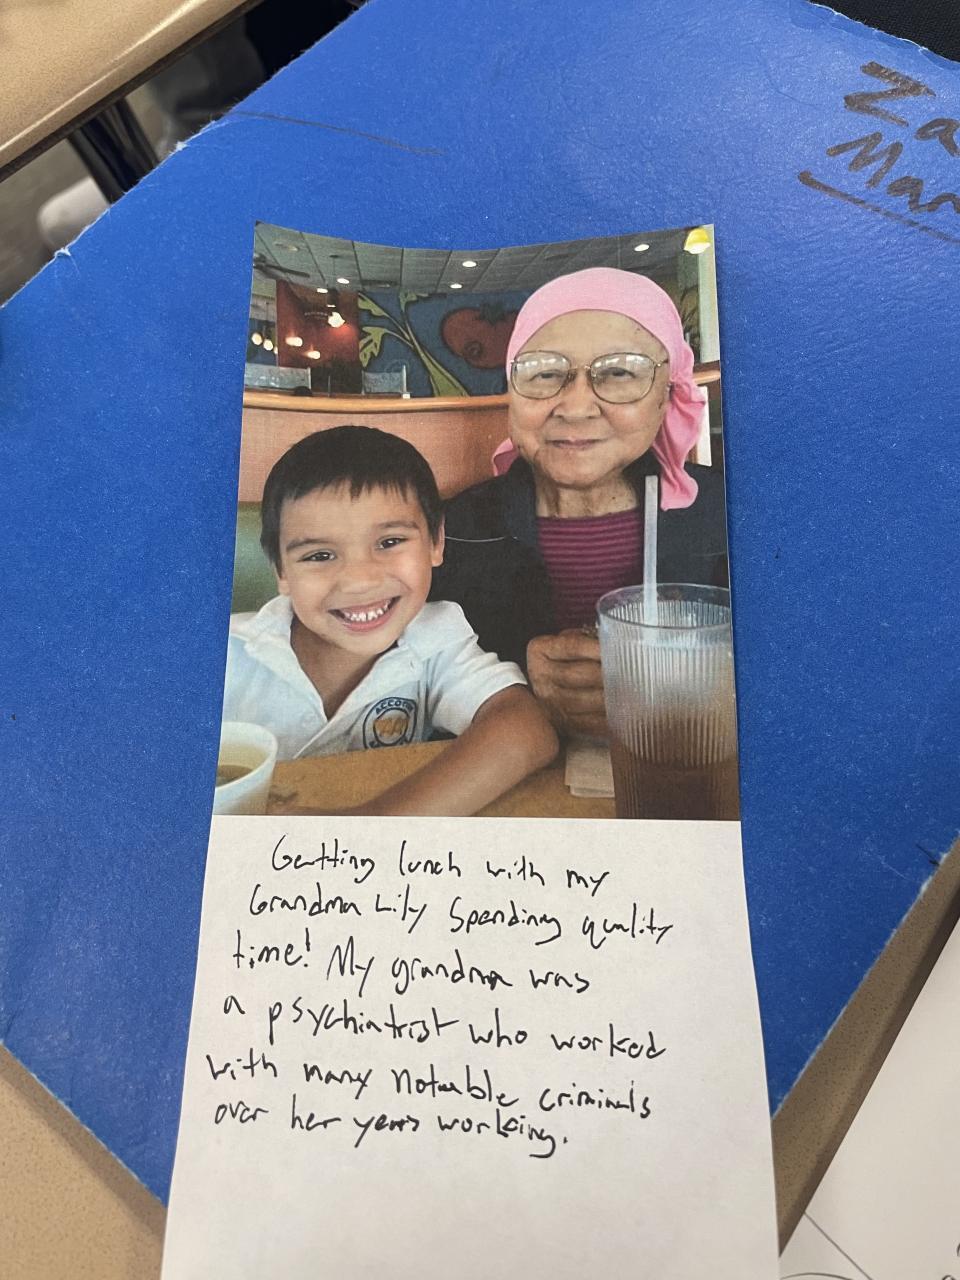 Za
Man
ACCOT
Getting lunch with my
Grandma Lily Spending quality
time! My grandma was
a psychiatrist who worked
with many notable criminals
over her years working.